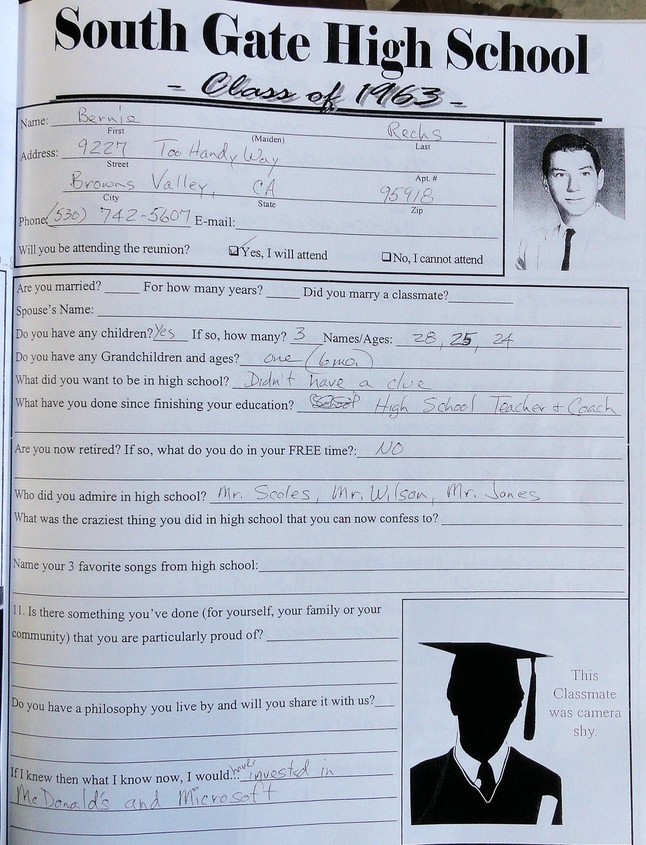 South Gate High School
- Class of 1963 -
Name: Bernie Rechs
First (Maiden) Last
Address: 9227 Too Handy Way
Street Apt. #
Browns Valley, CA 95918
City State Zip
Phone: (530) 742-5607 E-mail:
Will you be attending the reunion? Yes, I will attend No, I cannot attend
Are you married? For how many years? Did you marry a classmate?
Spouse's Name:
Do you have any children? Yes If so, how many? 3 Names/Ages: 28, 25, 24
Do you have any Grandchildren and ages? one (6mo.)
What did you want to be in high school? Didn't have a clue
What have you done since finishing your education? High School Teacher + Coach
Are you now retired? If so, what do you do in your FREE time?: NO
Who did you admire in high school? Mr. Scoles, Mr. Wilson, Mr. Jones
What was the craziest thing you did in high school that you can now confess to?
Name your 3 favorite songs from high school:
11. Is there something you've done (for yourself, your family or your
community) that you are particularly proud of?
This
Classmate
was camera
shy.
Do you have a philosophy you live by and will you share it with us?
If I knew then what I know now, I would: have invested in
McDonald's and Microsoft